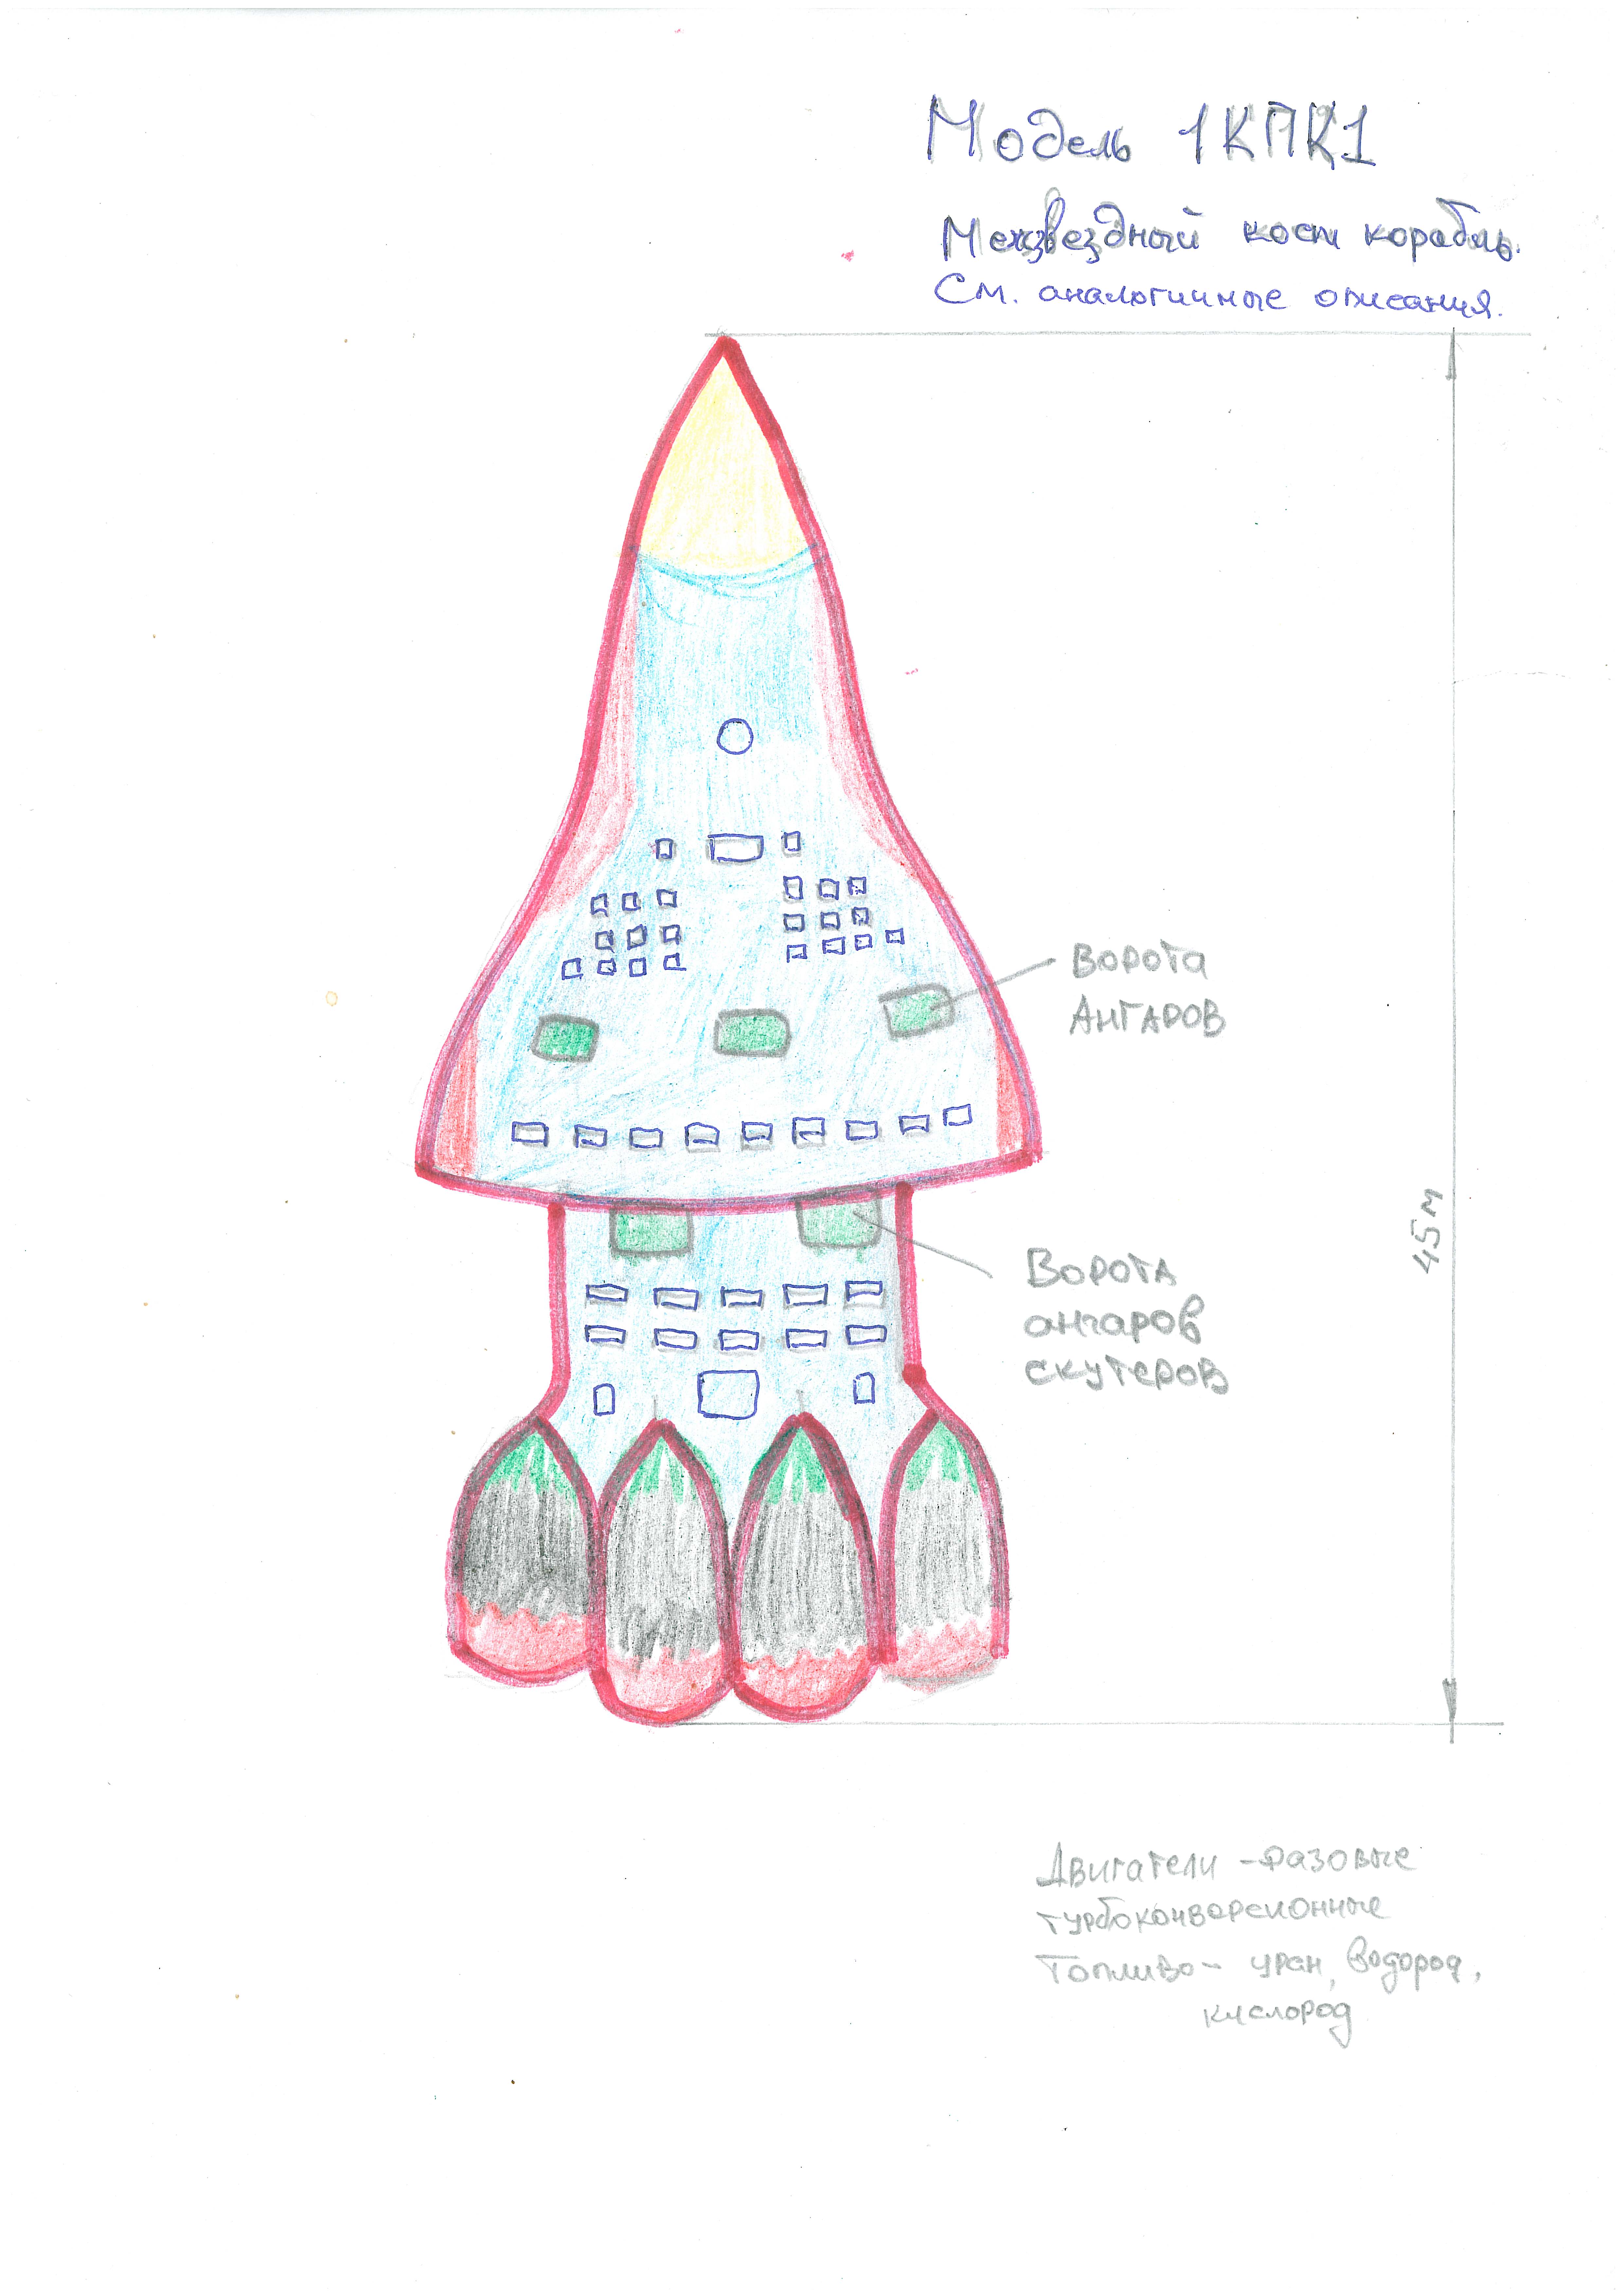 Модель 1КПК1
Межзвездный косм корабль.
См. аналогичные описания.
Ворота
Ангаров
45м
Ворота
ангаров
скутеров
Двигатели - фазовые
турбоконверсионные
Топливо - уран, водород,
кислород